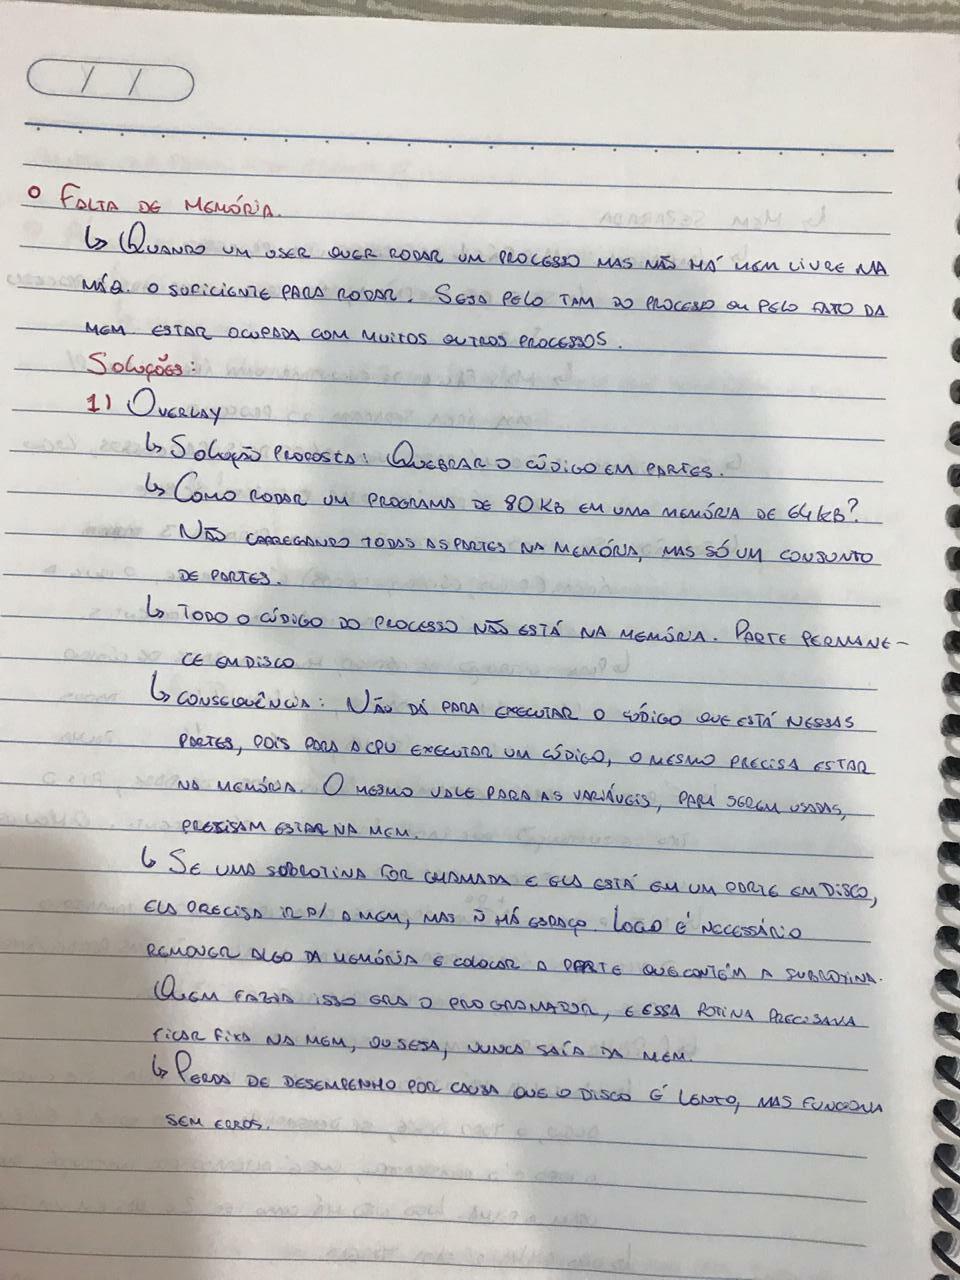 ○ FALTA DE MEMÓRIA.
↳ QUANDO UM USER QUER RODAR UM PROCESSO MAS NÃO HÁ MEM LIVRE NA
MÁQ. O SUFICIENTE PARA RODAR. SEJA PELO TAM DO PROCESSO OU PELO FATO DA
MEM ESTAR OCUPADA COM MUITOS OUTROS PROCESSOS.
SOLUÇÕES:
1) OVERLAY
↳ SOLUÇÃO PROPOSTA: QUEBRAR O CÓDIGO EM PARTES.
↳ COMO RODAR UM PROGRAMA DE 80KB EM UMA MEMÓRIA DE 64KB?
NÃO CARREGANDO TODAS AS PARTES NA MEMÓRIA, MAS SÓ UM CONJUNTO
DE PARTES.
↳ TODO O CÓDIGO DO PROCESSO NÃO ESTÁ NA MEMÓRIA. PARTE PERMANE-
CE EM DISCO
↳ CONSEQUÊNCIA: NÃO DÁ PARA EXECUTAR O CÓDIGO QUE ESTÁ NESSAS
PARTES, POIS PARA A CPU EXECUTAR UM CÓDIGO, O MESMO PRECISA ESTAR
NA MEMÓRIA. O MESMO VALE PARA AS VARIÁVEIS, PARA SEREM USADAS,
PRECISAM ESTAR NA MEM.
↳ SE UMA SUBROTINA FOR CHAMADA E ELA ESTÁ EM UM PARTE EM DISCO,
ELA PRECISA IR P/ A MEM, MAS Ñ HÁ ESPAÇO. LOGO É NECESSÁRIO
REMOVER ALGO DA MEMÓRIA E COLOCAR A PARTE QUE CONTÉM A SUBROTINA.
QUEM FAZIA ISSO ERA O PROGRAMADOR, E ESSA ROTINA PRECISAVA
FICAR FIXA NA MEM, OU SEJA, NUNCA SAÍA DA MEM.
↳ PERDA DE DESEMPENHO POR CAUSA QUE O DISCO É LENTO, MAS FUNCIONA
SEM ERROS.